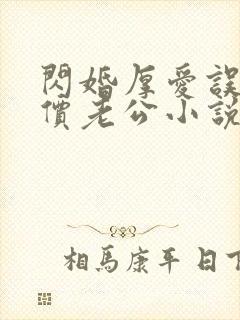 閃婚厚愛誤
價老公小說
相馬康平 日下